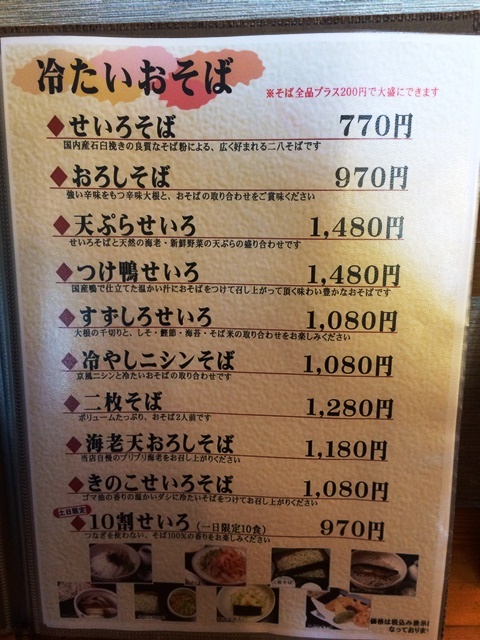 冷たいおそば
※そば全品プラス200円で大盛にできます
◆せいろそば 770円
国内産石臼挽きの良質なそば粉による、広く好まれる二八そばです
◆おろしそば 970円
強い辛味をもつ辛味大根と、おそばの取り合わせをご賞味ください
◆天ぷらせいろ 1,480円
せいろそばと天然の海老・新鮮野菜の天ぷらの盛り合わせです
◆つけ鴨せいろ 1,480円
国産鴨で仕立てた温かい汁におそばをつけて召し上がって頂く味わい豊かなおそばです
◆すずしろせいろ 1,080円
大根の千切りと、しそ・鰹節・海苔・そば米の取り合わせをお楽しみください
◆冷やしニシンそば 1,080円
京風ニシンと冷たいおそばの取り合わせです
◆二枚そば 1,280円
ボリュームたっぷり、おそば2人前です
◆海老天おろしそば 1,180円
当店自慢のプリプリ海老をお召し上がりください
◆きのこせいろそば 1,080円
ゴマ油の香りの温かいダシに冷たいそばをつけてお召し上がりください
土日限定
◆10割せいろ(一日限定10食) 970円
つなぎを使わない、そば100%の香りをお楽しみください
価格は税込み表示
なっておりま